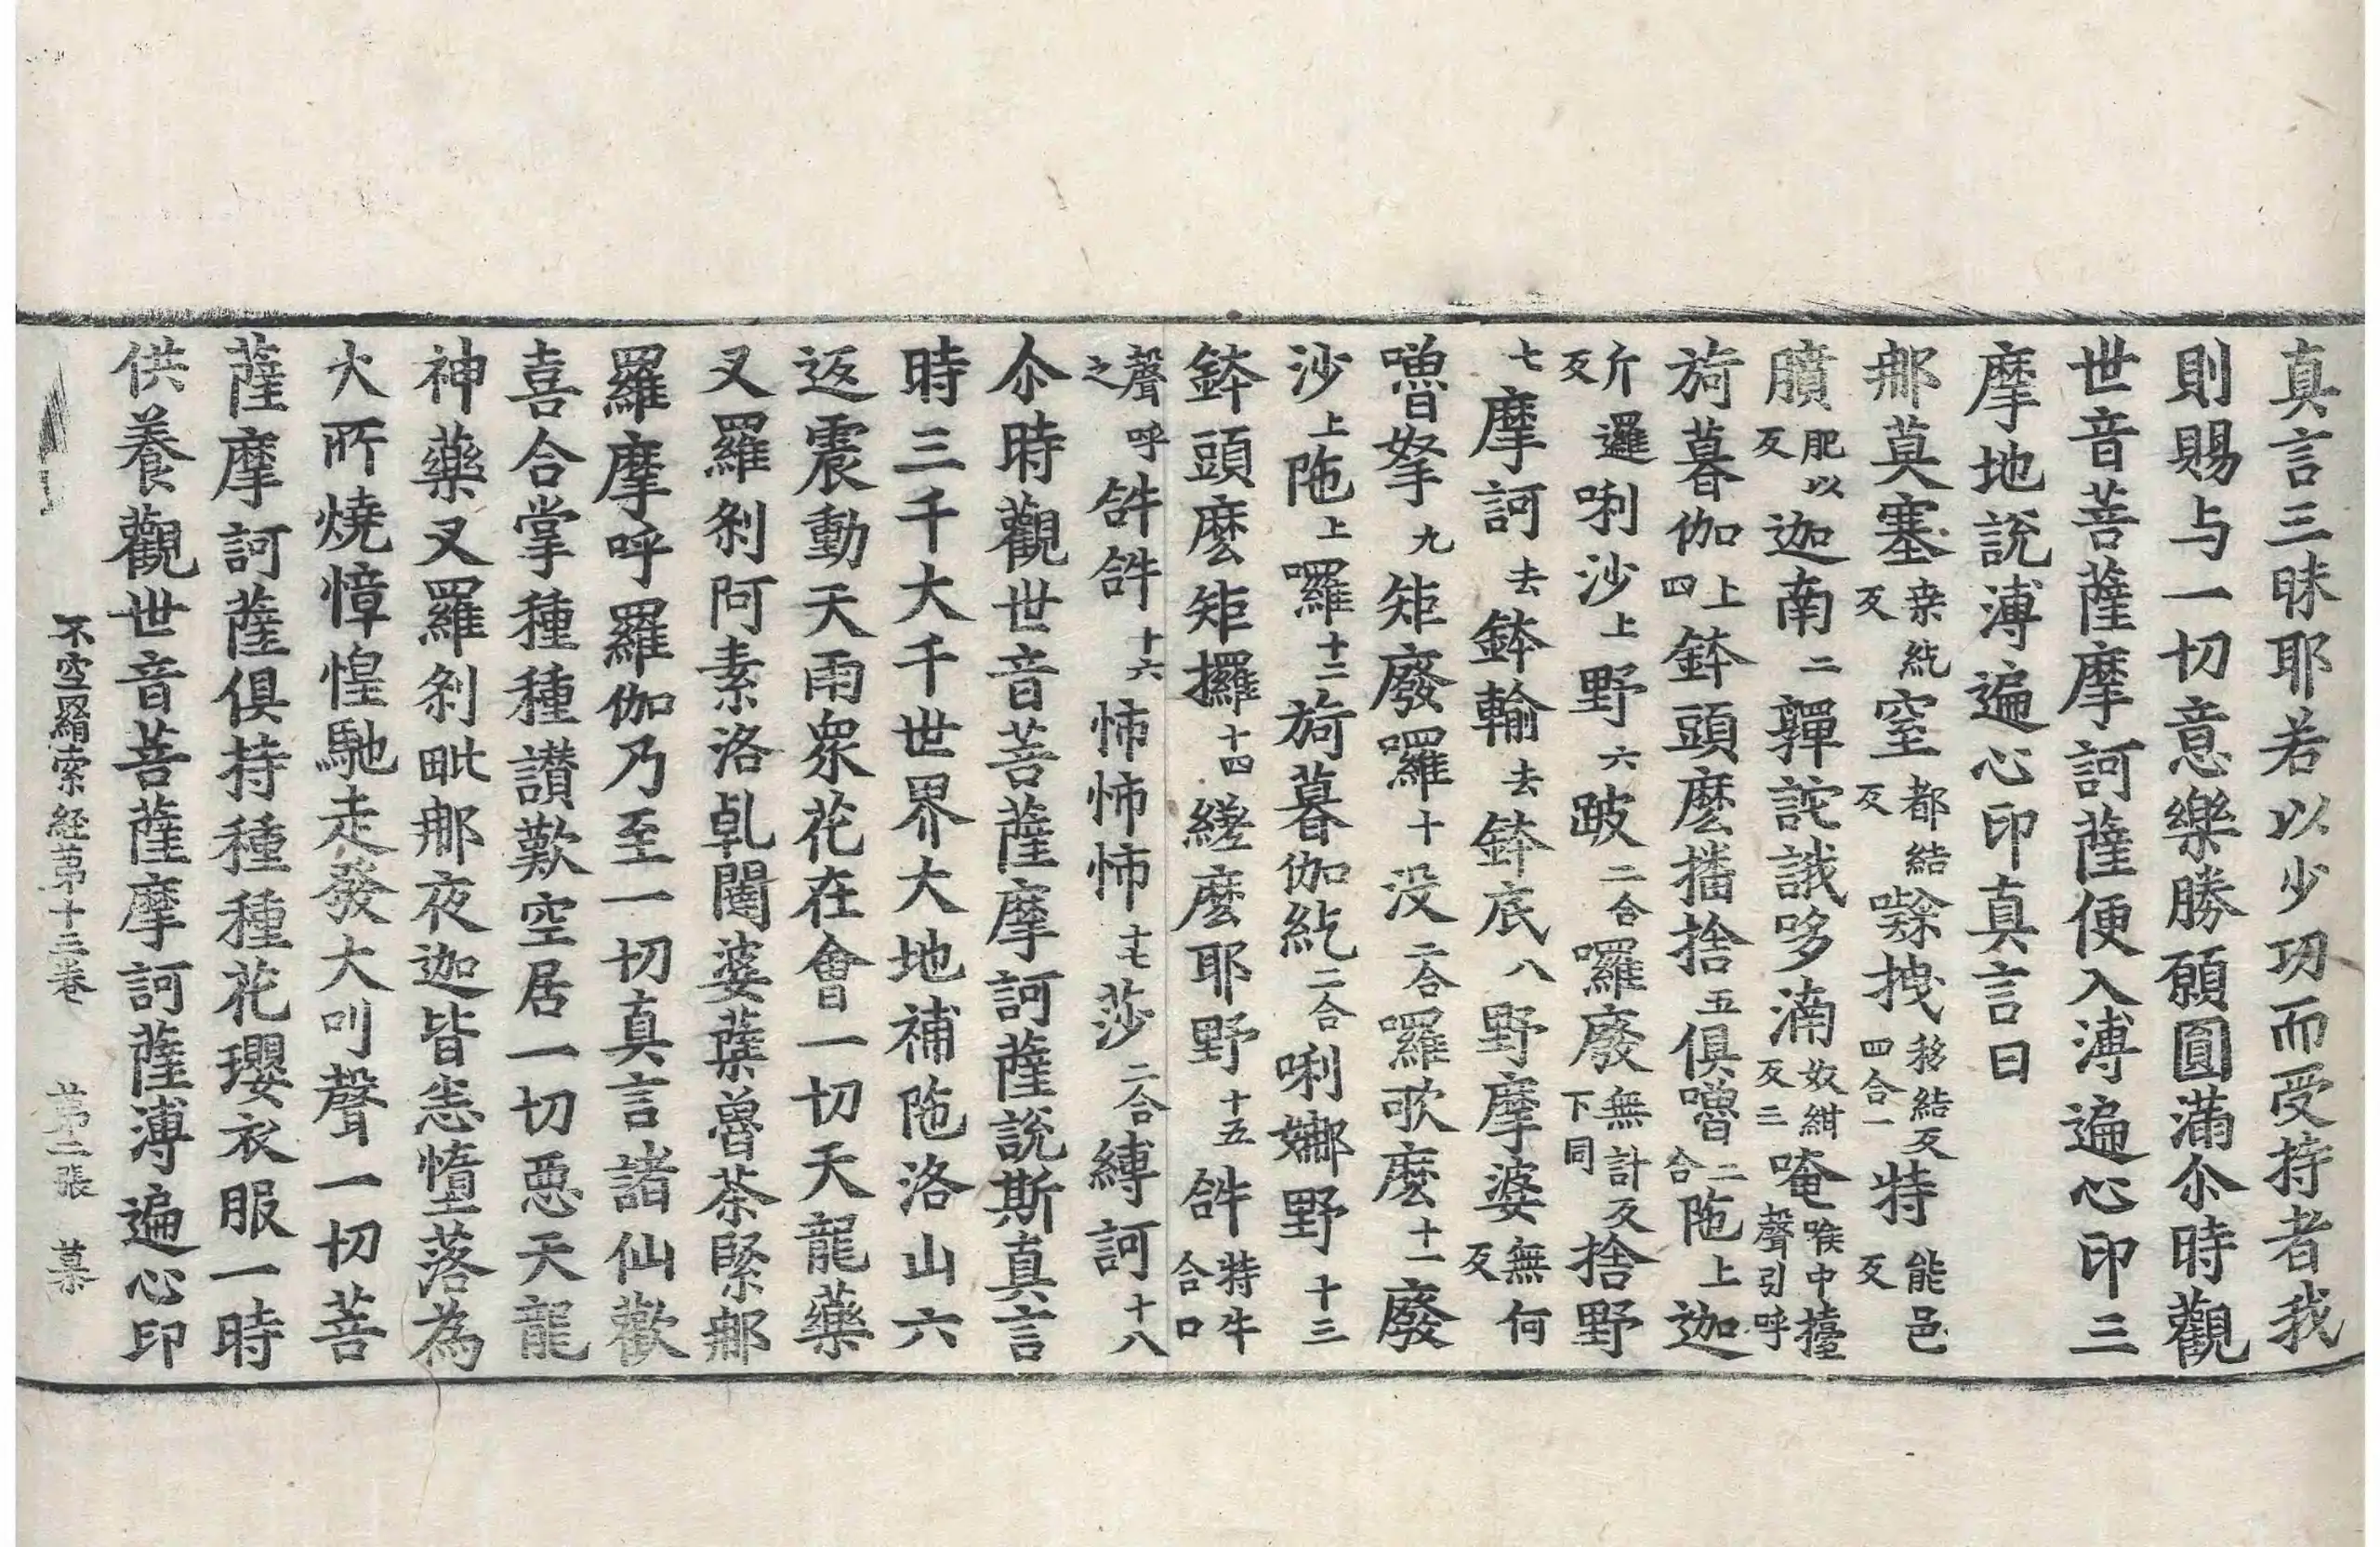 真言三昧耶若以少功而受持者我
則賜与一切意樂勝願圓滿尒時觀
世音菩薩摩訶薩便入溥遍心印三
摩地說溥遍心印真言曰
那莫塞桒紇反窒都結反㘑拽移結反四合一特能邑反
膹肥以反迦南二韗詫誐哆湳奴紺反三唵喉中擡聲引呼
旖暮伽上四鉢頭麽播捨五俱嚕二合陁上迦
斤邏反唎沙上野六跛二合囉廢無計反下同捨野
七摩訶去鉢輸去鉢底八野摩婆無何反
嚕拏九矩廢囉十没二合囉歌麽十一廢
沙上陁上囉十二旖暮伽紇二合唎娜野十三
鉢頭麽矩攞十四縒麽耶野十五𤙖特牛合口
聲呼之𤙖𤙖十六怖怖怖十七莎二合縛訶十八
尒時觀世音菩薩摩訶薩說斯真言
時三千大千世界大地補陁洛山六
返震動天雨衆花在會一切天龍藥
叉羅剎阿素洛乹闥婆蘖魯茶緊那
羅摩呼羅伽乃至一切真言諸仙歡
喜合掌種種讃歎空居一切惡天龍
神藥叉羅剎毗那夜迦皆恚墮落為
火所燒慞惶馳走發大叫聲一切菩
薩摩訶薩俱持種種花瓔衣服一時
供養觀世音菩薩摩訶薩溥遍心印
不空羂索經苐十三卷　苐二張　慕